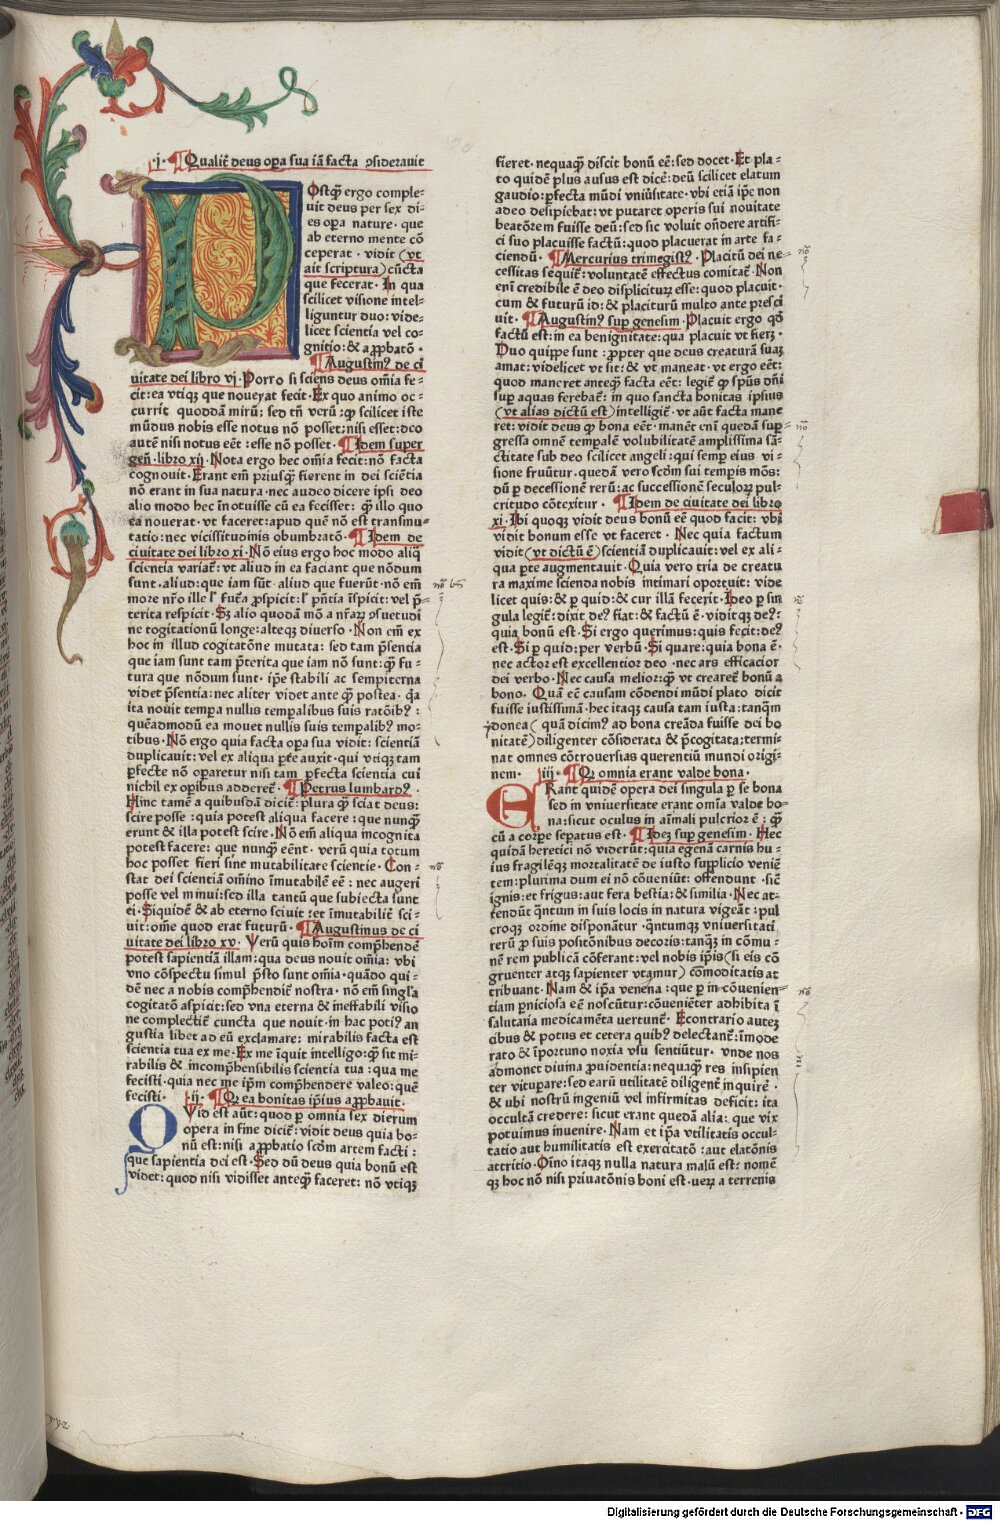 .i. ¶ Qualit̃ deus oꝑa sua iã facta ꝯsiderauit
POstq̃ ergo comple⸗
uit deus per sex di⸗
es oꝑa nature· que
ab eterno mente cõ
ceperat· vidit (vt
ait scriptura) cũcta
que fecerat· In qua
scilicet visione intel⸗
liguntur duo: vide⸗
licet scientia vel co⸗
gnitio: & aꝓpbatõ·
¶ Augustin⁹ de ci
uitate dei libro vj· Porro si sciens deus om̃ia fe⸗
cit: ea vtiqꝫ que nouerat fecit· Ex quo animo oc⸗
currit quoddã mirũ: sed tñ verũ: ꝙ scilicet iste
mũdus nobis esse notus nõ posset: nisi esset: deo
autẽ nisi notus eẽt: esse nõ posset· ¶ Idem super
geñ·libro xij· Nota ergo hec om̃ia fecit: nõ facta
cognouit· Erant em̃ priusq̃ fierent in dei sciẽtia
nõ erant in sua natura· nec audeo dicere ipsi deo
alio modo hec ĩnotuisse cũ ea fecisset: q̃ illo quo
ea nouerat· vt faceret: apud quẽ nõ est transmu⸗
tatio: nec vicissitudinis obumbratõ· ¶ Idem de
ciuitate dei libro xi· Nõ eius ergo hoc modo aliq̃
scientia variat̃: vt aliud in ea faciant que nõdum
sunt· aliud: que iam sũt· aliud que fuerũt· nõ em̃
more nr̃o ille l' fut̃a ꝓspicit: l' pñtia ĩspicit: vel p̃⸗
terita respicit· Sꝫ alio quodã mõ a nr̃aꝝ ꝯsuetudi
ne cogitationũ longe: alteqꝫ diuerso· Non em̃ ex
hoc in illud cogitatõne mutata: sed tam p̃sentia
que iam sunt tam p̃terita que iam nõ sunt: q̃ fu⸗
tura que nõdum sunt· ip̃e stabili ac sempiterna
videt p̃sentia: nec aliter videt ante q̃ postea· q̃a
ita nouit tempa nullis tempalibus suis ratõib⁹:
quẽadmodũ ea mouet nullis suis tempalib⁹ mo⸗
tibus· Nõ ergo quia facta oꝑa sua vidit: scientiã
duplicauit: vel ex aliqua p̃te auxit· qui vtiqꝫ tam
ꝑfecte nõ oꝑaretur nisi tam ꝑfecta scientia cui
nichil ex oꝑibus adderet̃· ¶ Petrus lumbard⁹·
Hinc tamẽ a quibusdã dicit̃: plura q̃ sciat deus:
scire posse: quia potest aliqua facere: que nunq̃
erunt & illa potest scire· Nõ em̃ aliqua incognita
potest facere: que nunq̃ eẽnt· verũ quia totum
hoc posset fieri sine mutabilitate scientie· Con⸗
stat dei scientiã om̃ino ĩmutabilẽ eẽ: nec augeri
posse vel minui: sed illa tantũ que subiecta sunt
ei· Siquidẽ & ab eterno sciuit: et ĩmutabilit̃ sci⸗
uit: om̃e quod erat futurũ· ¶ Augustinus de ci
uitate dei libro xv· Verũ quis hoĩm comp̃hendẽ
potest sapientiã illam: qua deus nouit om̃ia: vbi
vno cõspectu simul p̃sto sunt om̃ia· quãdo qui⸗
dẽ nec a nobis comp̃hendit̃ nostra· nõ em̃ singl̃a
cogitatõ aspicit: sed vna eterna & ineffabili visio
ne complectit̃ cuncta que nouit· in hac poti⁹ an
gustia libet ad eũ exclamare: mirabilis facta est
scientia tua ex me· Ex me ĩquit intelligo: q̃ sit mi⸗
rabilis & incomp̃hensibilis scientia tua: qua me
fecisti· quia nec me ip̃m comp̃hendere valeo: quẽ
fecisti· .ii. ¶ Q ea bonitas ip̃ius aꝓpbauit·
QVid est aũt: quod ꝑ omnia sex dierum
opera in fine dicit̃: vidit deus quia bo⸗
nũ est: nisi aꝓpbatio scdm artem facti:
que sapientia dei est· Sed dũ deus quia bonũ est
videt: quod nisi vidisset anteq̃ faceret: nõ vtiqꝫ
fieret· nequaq̃ discit bonũ eẽ: sed docet· Et pla⸗
to quidẽ plus ausus est dicẽ: deũ scilicet elatum
gaudio: ꝑfecta mũdi vniũsitate· vbi etiã ip̃e non
adeo desipiebat: vt putaret operis sui nouitate
beatõrem fuisse deũ: sed sic voluit oñdere artifi⸗
ci suo placuisse factũ: quod placuerat in arte fa⸗
ciendũ· ¶ Mercurius trimegist⁹· Placitũ dei ne⸗
cessitas sequit̃: voluntatẽ effectus comitat̃· Non
em̃ credibile ẽ deo displicituꝝ esse: quod placuit·
cum & futurũ id: & placiturũ multo ante presci
uit· ¶ Augustin⁹ sup genesim· Placuit ergo qõ
factũ est: in ea benignitate: qua placuit vt fieꝝ·
Duo quippe sunt: ꝓpter que deus creaturã suaꝫ
amat: videlicet vt sit: & vt maneat· vt ergo eẽt:
quod maneret anteq̃ facta eẽt: legit̃ ꝙ spũs dñi
sup aquas ferebat̃: in quo sancta bonitas ipsius
(vt alias dictũ est) intelligit̃· vt aũt facta mane
ret: vidit deus ꝙ bona eẽt· manẽt em̃ quedã sup⸗
gressa omnẽ tempalẽ volubilitatẽ amplissima sã⸗
ctitate sub deo scilicet angeli: qui semp eius vi⸗
sione fruũtur· quedã vero scdm sui tempis mõs:
dũ ꝑ decessionẽ rerũ: ac successionẽ seculoꝝ pul⸗
critudo cõtexitur· ¶ Idem de ciuitate dei libro
xi· Ibi quoqꝫ vidit deus bonũ eẽ quod facit: vbi
vidit bonum esse vt faceret· Nec quia factum
vidit (vt dictũ ẽ) scientiã duplicauit: vel ex ali⸗
qua ꝑte augmentauit· Quia vero tria de creatu
ra maxime scienda nobis intimari oportuit: vide
licet quis: & ꝑ quid: & cur illã fecerit· Ideo ꝑ sin
gula legit̃: dixit de⁹ fiat: & factũ ẽ· viditqꝫ de⁹:
quia bonũ est· Si ergo querimus: quis fecit: de⁹
est· Si ꝑ quid: per verbũ· Si quare: quia bona ẽ·
nec actor est excellentior deo· nec ars efficacior
dei verbo· Nec causa melior: q̃ vt crearet̃ bonũ a
bono· Quã eẽ causam cõdendi mũdi plato dicit
fuisse iustissimã· hec itaqꝫ causa tam iusta: tanq̃m
ydonea (quã dicim⁹ ad bona creãda fuisse dei bo
nitatẽ) diligenter cõsiderata & p̃cogitata: termi⸗
nat omnes cõtrouersias querentiũ mundi origi⸗
nem· .iij. ¶ Q omnia erant valde bona·
ERant quidẽ opera dei singula ꝑ se bona
sed in vniuersitate erant om̃ia valde bo⸗
na: sicut oculus in aĩmali pulcrior ẽ: q̃
cũ a corꝑe sepatus est· ¶ Ideꝫ sup genesim· Hec
quidã heretici nõ viderũt: quia egenã carnis hu⸗
ius fragileqꝫ mortalitatẽ de iusto supplicio veniẽ
tem: plurima dum ei nõ cõueniũt: offendunt· sic̃
ignis: et frigus: aut fera bestia: & similia· Nec at⸗
tendũt q̃ntum in suis locis in natura vigeãt: pul
croqꝫ ordine disponãtur· q̃ntumqꝫ vniuersitati
rerũ ꝓ suis positõnibus decoris: tanq̃ in cõmu⸗
nẽ rem publicã cõferant: vel nobis ip̃is (si eis cõ
gruenter atqꝫ sapienter vtamur) cõmoditatis at
tribuant· Nam & ip̃a venena: que ꝑ in cõuenien⸗
tiam ꝑniciosa eẽ noscũtur: cõueniẽter adhibita ĩ
salutaria medicamẽta vertunt̃· Econtrario auteꝫ
cibus & potus et cetera quib⁹ delectant̃: ĩmode
rato & ĩportuno noxia vsu sentiũtur· vnde nos
admonet diuina ꝓuidentia: nequaq̃ res insipien
ter vitupare: sed earũ vtilitatẽ diligent̃ inquirẽ·
& ubi nostrũ ingeniũ vel infirmitas deficit: ita
occultã credere: sicut erant quedã alia: que vix
potuimus inuenire· Nam et ip̃a vtilitatis occul⸗
tatio aut humilitatis est exercitatõ: aut elatõnis
attritio· Oĩno itaqꝫ nulla natura malũ est: nomẽ
qꝫ hoc nõ nisi priuatõnis boni est· veꝝ a terrenis
Digitalisierung gefördert durch die Deutsche Forschungsgemeinschaft - DFG